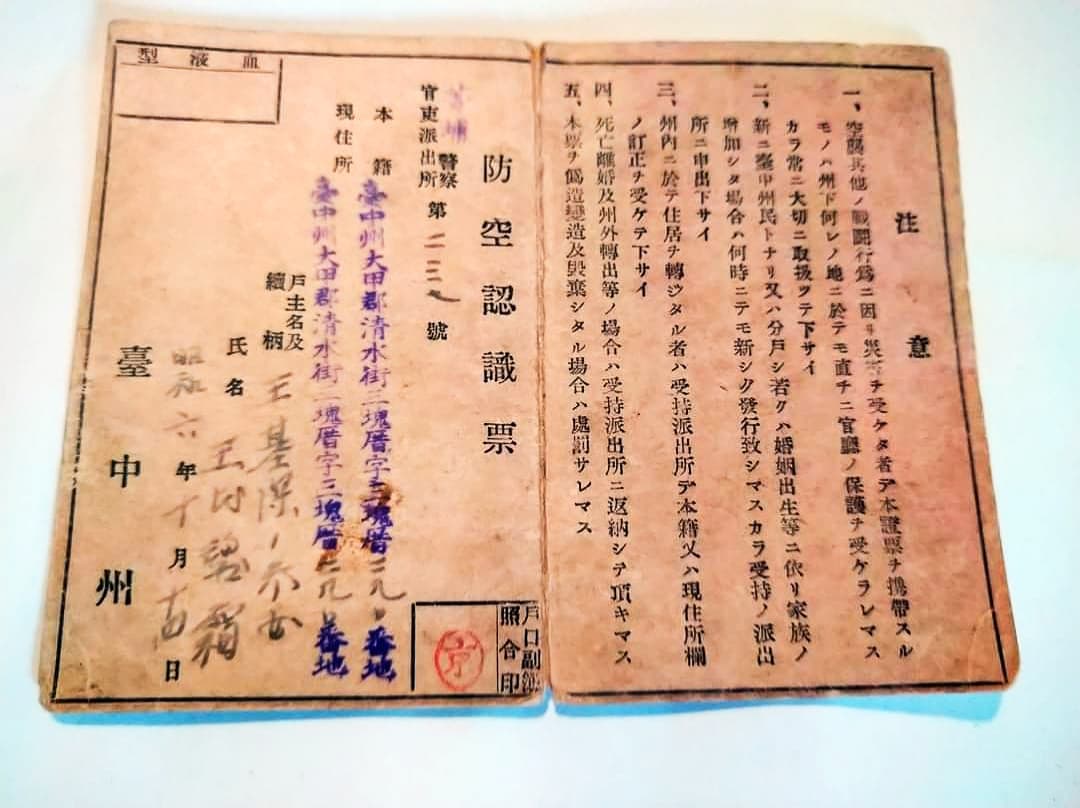 注意
一、空襲其他ノ戰鬪行爲ニ因リ災害ヲ受ケタ者デ本證票ヲ携帶スル
モノハ州下何レノ地ニ於テモ直チニ官廳ノ保護ヲ受ケラレマス
カラ常ニ大切ニ取扱ツテ下サイ
二、新ニ臺中州民トナリ又ハ分戶シ若クハ婚姻出生等ニ依リ家族ノ
增加シタ場合ハ何時ニテモ新シク發行致シマスカラ受持ノ派出
所ニ申出下サイ
三、州內ニ於テ住居ヲ轉ジタル者ハ受持派出所デ本籍又ハ現住所欄
ノ訂正ヲ受ケテ下サイ
四、死亡離婚及州外轉出等ノ場合ハ受持派出所ニ返納シテ頂キマス
五、本票ヲ僞造變造及毀棄シタル場合ハ處罰サレマス
戶口副簿
照合印
防空認識票
警察
官東派出所
第二三號
本籍
臺中州大甲郡清水街三塊厝字三塊厝番地
現住所
臺中州大甲郡清水街三塊厝字三塊厝番地
戶主名及
續柄
王基
氏名
王
昭和六年十月日
臺中州
血液型